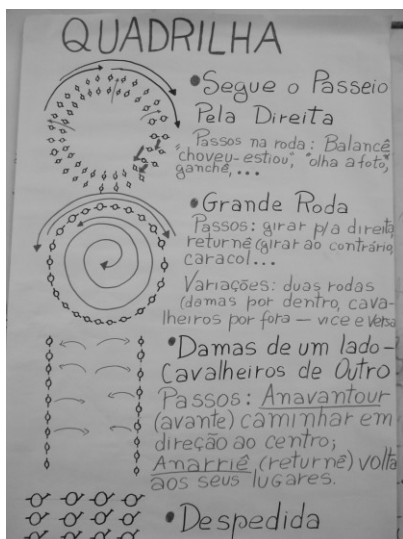 QUADRILHA
• Segue o Passeio
Pela Direita
Passos na roda: Balancê
"choveu-estiou", "olha a foto",
ganchê,...
• Grande Roda
Passos: girar p/a direita
returnê (girar ao contrário,
caracol...
Variações: duas rodas
(damas por dentro, cava-
lheiros por fora — vice e versa
• Damas de um lado-
Cavalheiros de Outro
Passos: Anavantour
(avante) caminhar em
direção ao centro;
Anarriê (returnê) volta
aos seus lugares.
• Despedida